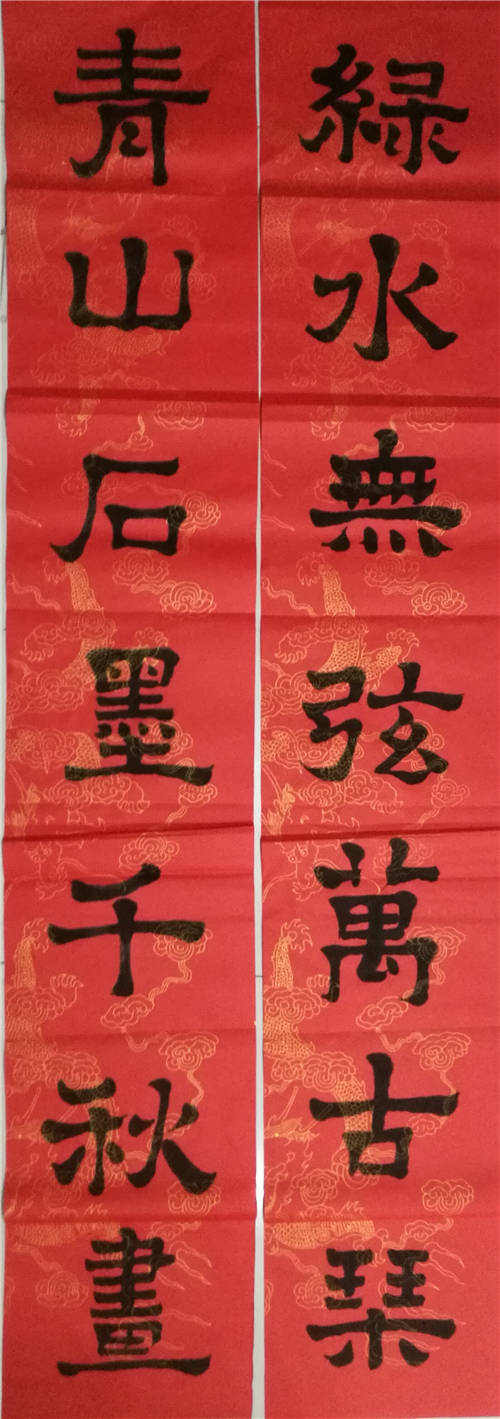 緑水無弦萬古琹
青山石墨千秋畫